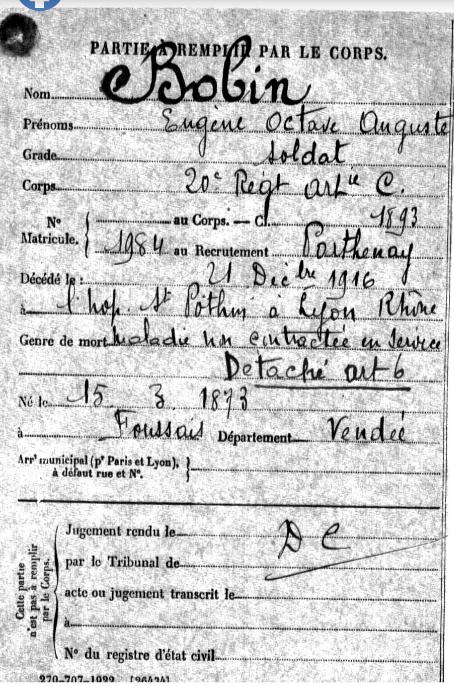 PARTIE À REMPLIR PAR LE CORPS.
Nom Bobin
Prénoms Eugène Octave Auguste
Grade Soldat
Corps 20e Régt artie C.
N° Matricule. { au Corps. — Cl. 1893
1984 au Recrutement Parthenay
Décédé le : 21 Décbre 1916
à l'hop. St Pothin à Lyon Rhône
Genre de mort Maladie non contractée en service
Détaché art 6
Né le 15 3 1873
à Foussais Département Vendée
Arrt municipal (pr Paris et Lyon), à défaut rue et N°. }
Cette partie n'est pas à remplir par le Corps.
Jugement rendu le
D C
par le Tribunal de
acte ou jugement transcrit le
à
N° du registre d'état civil
270-707-1922. [26434]